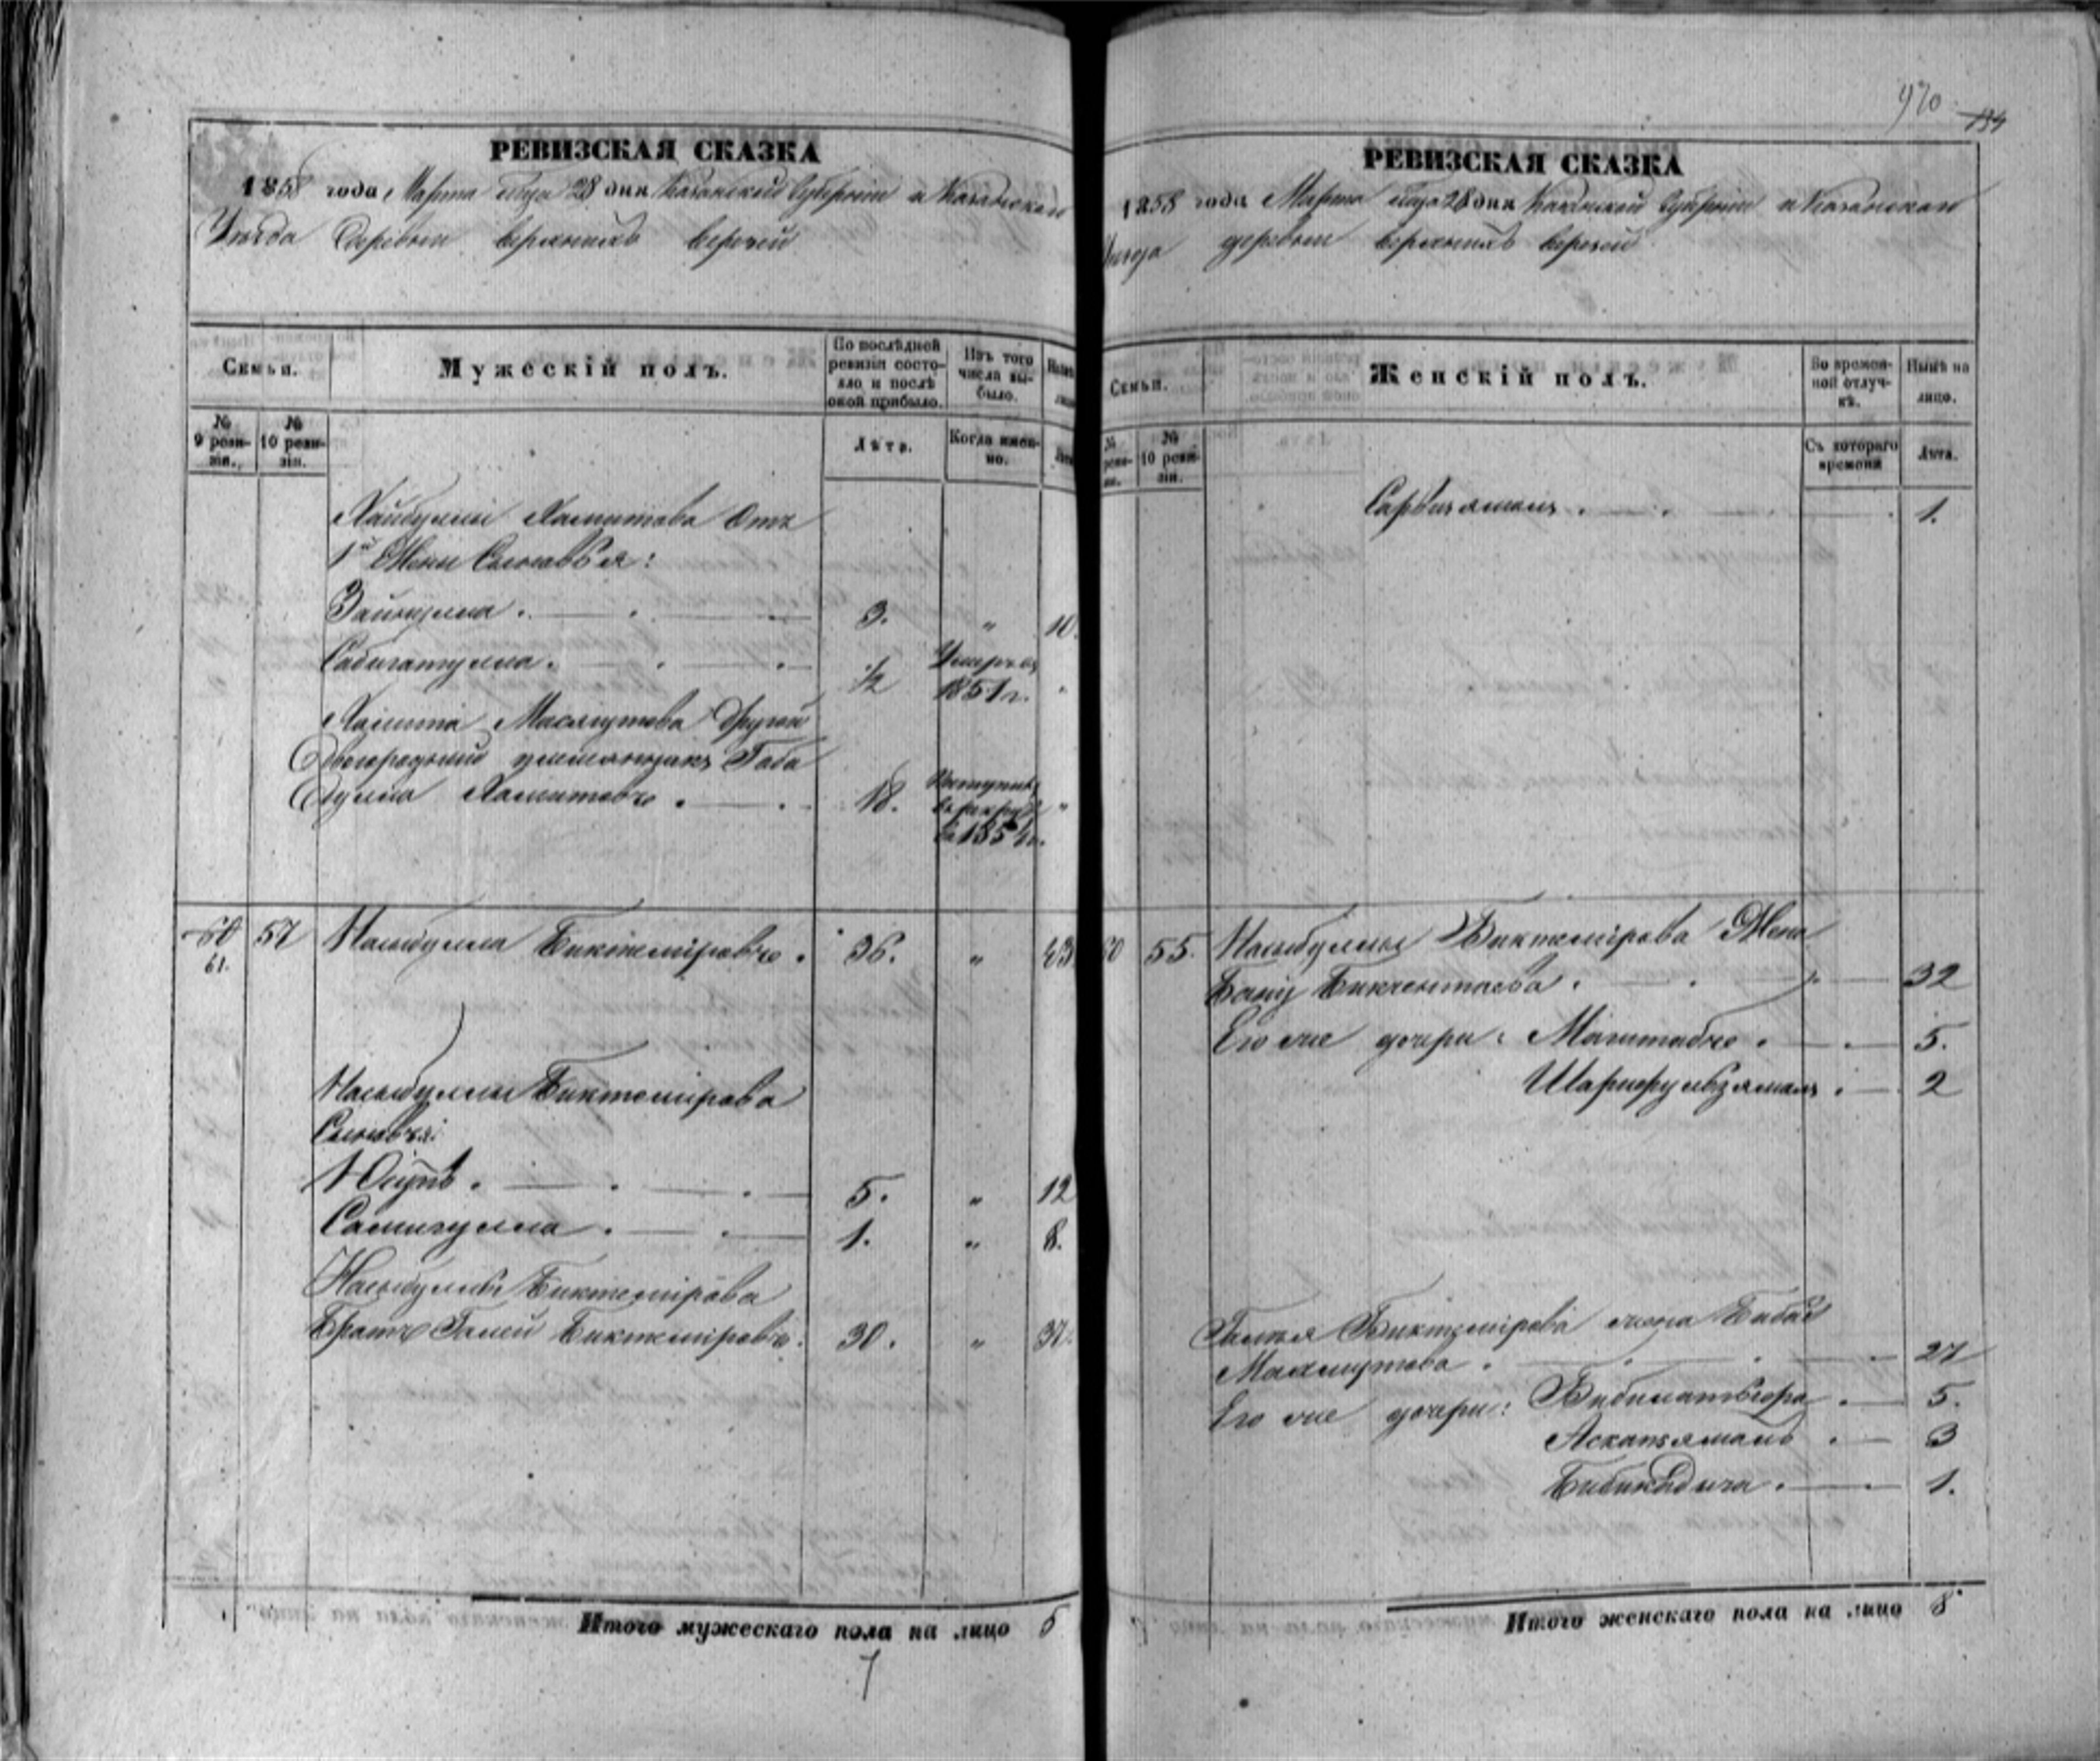 920
134
РЕВИЗСКАЯ СКАЗКА
1858 года Марта мца 28 дня Казанской Губернии и Казанскаго
Уезда Деревни верхнихъ верезей
Семьи.
Мужескій полъ.
По послѣдней ревизіи состояло и послѣ оной прибыло.
Изъ того числа выбыло.
№ 9 ревизіи.
№ 10 ревизіи.
Лѣта.
Когда именно.
Хайбуллы Хамитова Отъ
1й Жены Сыновья:
Зайнулла . 3. " 10.
Сабигатулла . 1/2 Умеръ въ 1851 г. "
Хамита Масягутова другой
Двоюродный племянникъ Габ
дулла Хамитовъ . 18. въ 1854 г. "
60 61. 57 Насыбулла Биктемировъ . 36. " 43
Насыбуллы Биктемирова
Сыновья:
Юсупъ . 5. " 12
Самигулла . 1. " 8.
Насыбуллы Биктемирова
Братъ Галей Биктемировъ . 30. " 37.
Итого мужескаго пола на лицо 5
7
РЕВИЗСКАЯ СКАЗКА
1858 года Марта мца 28 дня Казанской Губернии и Казанскаго
Уезда деревни верхнихъ верезей
Семьи.
Женскій полъ.
Во временной отлучкѣ.
Нынѣ на лицо.
№ 10 ревизіи.
Съ котораго времени
Лѣта.
Сарвизямалъ . 1.
60 55. Насыбуллы Биктемирова Жена
Бану Бикчентаева . 32
Его же дочери: Магитабъ . 5.
Шарифульзямалъ . 2
Галея Биктемирова жена Биби
Махмутова . 27
Его же дочери: 5.
3
1.
Итого женскаго пола на лицо 8